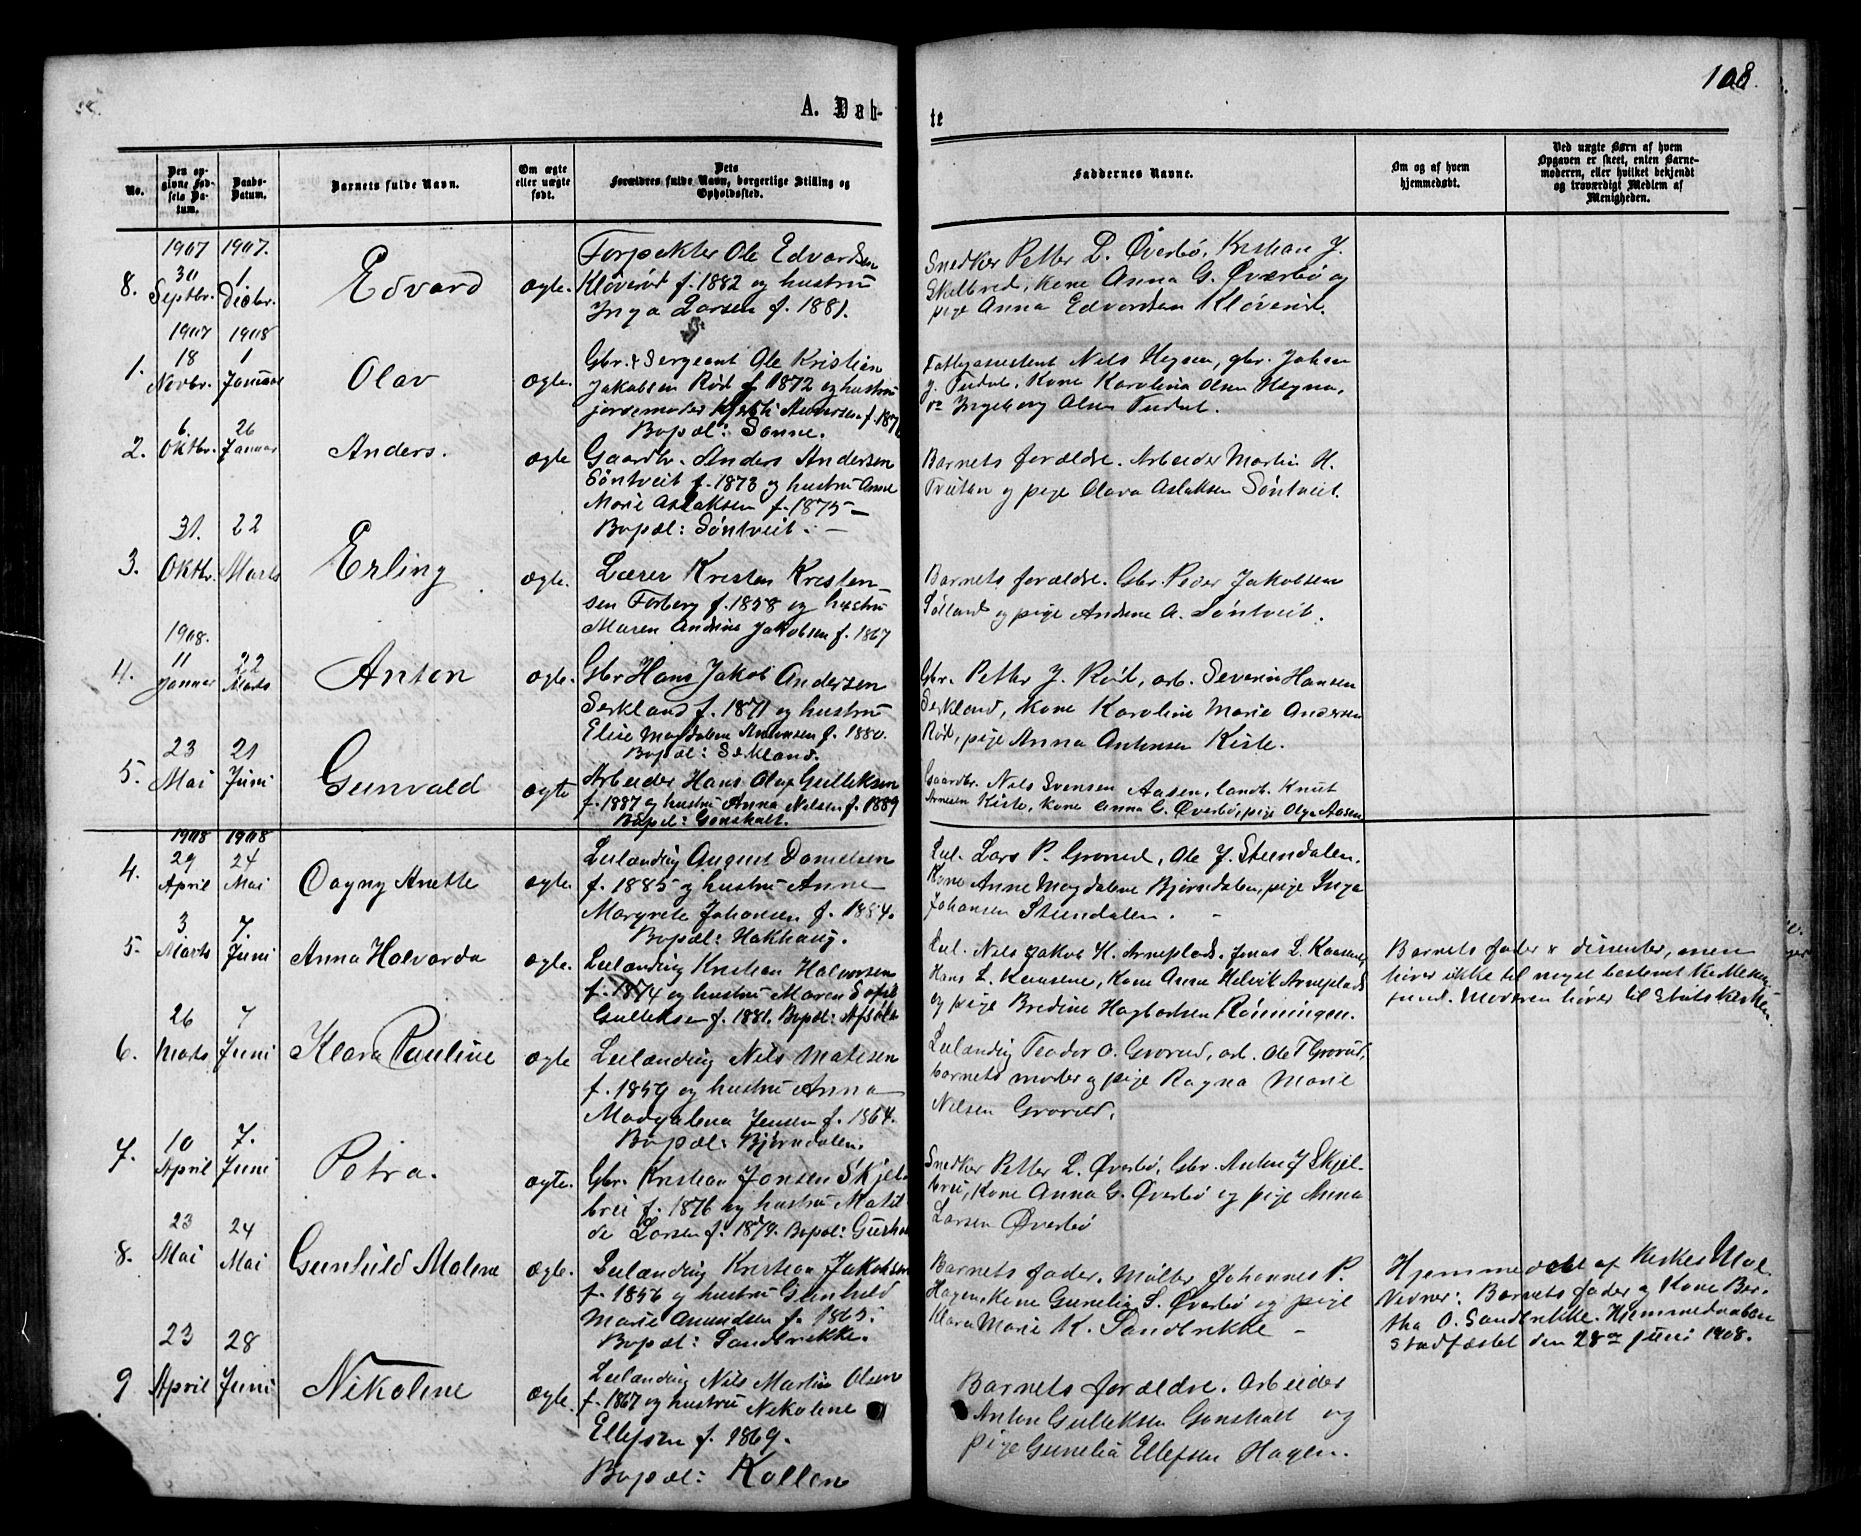 108.
A. Døb-
te
No.
Den op-
givne Fød-
sels Da-
tum.
Daabs-
Datum.
Barnets fulde Navn.
Om ægte
eller uægte
født.
Dets
Forældres fulde Navn, borgerlige Stilling og
Opholdssted.
Faddernes Navne.
Om og af hvem
hjemmedøbt.
Ved uægte Børn af hvem
Opgaven er skeet, enten Barne-
moderen, eller hvilket bekjendt
og troværdigt Medlem af
Menigheden.
1907 1907.
8. 30 Septbr. 1 Decbr. Edvard ægte.
Forpakter Ole Edvardsen
Kløverød f. 1882 og hustru
Inga Larsen f. 1881.
Snedker Petter L. Øverbø, Kristian J.
Skelbred, kone Anna G. Øverbø og
pige Anna Edvardsen Kløverød.
1907 1908
1. 18 Novbr. 1 Januar Olav ægte.
Gbr. & Sergeant Ole Kristian
Jakobsen Rød f. 1872 og hustru
jordemoder Andersen f. 187
Bopæl: Sanne.
Nils Hegna, gbr.
J. Tudal, Kone Karolina Olsen Hegna,
Ingeborg Olsen Tudal.
2. 6. Oktbr. 26 Januar Anders. ægte
Gaardbr. Anders Andersen
Søntveit f. 1873 og hustru Anne
Marie Aslaksen f. 1875 —
Bopæl: Søntveit. —
Barnets forældre. Arbeider Martin H.
og pige Olava Aslaksen Søntveit.
3. 31. Oktbr. 22 Marts Erling ægte.
Lærer Kristen Kristen-
sen Forberg f. 1858 og hustru
Maren Andrine Jakobsen f. 1867
Barnets forældre. Gbr. Peder Jakobsen
Sølland og pige Andrine A. Søntveit.
1908.
4. 11 Januar 22 Marts Anton ægte.
Gbr Hans Jakob Andersen
Serkland f. 1871 og hustru
Elise Magdalene Antonsen f. 1880.
Bopæl: Serkland.
Gbr. Petter J. Rød, arb. Severin Hansen
Serkland, kone Karoline Marie Andersen
Rød, pige Anna Antonsen Kiste.
5. 23 Mai 21 Juni Gunvald ægte
Arbeider Hans Olaf Gulleksen
f. 1887 og hustru Anna Nilsen f. 1889
Bopæl: Gonsholt.
Gaardbr. Nils Svensen Aasen, Landb. Knut
Arnesen Kiste, kone Anna G. Øverbø, pige Olga Aasen
1908 1908
4. 29 April 24 Mai Dagny Anette ægte.
Leilænding August Danielsen
f. 1885 og hustru Anne
Margrete Johansen f. 1884.
Bopæl: Hakhaug.
Leil. Lars P. Grorud, Ole J. Stendalen.
Kone Anne Magdalene Bjørndalen, pige Inga
Johansen Stendalen. —
5. 3. Marts 7. Juni Anna Halvarda ægte.
Leilænding Kristian Halvorsen
f. 1874 og hustru Maren Sofie
Gulleksen f. 1881. Bopæl:
Leil. Nils Jakob K. Arneplads. Jonas L.
Hans L. Kone Anne Helvik Arneplads
og pige Bredine Hagbartsen Rønningen.
Barnets fader er dissenter, men
hører ikke til noget bestemt Kirkesam-
fund. Moderen hører til Statskirken.
6. 26 Marts 7 Juni Klara Pauline ægte
Leilænding Nils Matisen
f. 1859 og hustru Anna
Madgalena Jensen f. 1864.
Bopæl: Bjørndalen.
Leilænding Teodor O. Grorud, arb. Ole T Grorud,
barnets moder og pige Ragna Marie
Nilsen Grorud.
7. 10 April 7. Juni Petra. ægte.
Gbr. Kristian Jonsen Skjel-
brei f. 1876 og hustru Matil-
de Larsen f. 1879. Bopæl:
Snedker Petter L. Øverbø, Gbr. Anton J Skjel-
brei, Kone Anna G. Øverbø og pige Anna
Larsen Øverbø
8. 23 Mai 24 Mai Gunhild Malene ægte.
Leilænding Kristian Jakobsen
f. 1856 og hustru Gunhild
Marie Amundsen f. 1865.
Bopæl: Sandbrekke.
Barnets fader. Møller Johannes P.
Hagen, kone Gunelia S. Øverbø og pige
Klara Marie K. Sandbrekke —
Hjemmedøbt af
Vidner: Barnets fader og Kone Ber-
tha O. Sandbrekke. Hjemmedaaben
stadfæstet den 28de juni 1908.
9 23 April 28 Juni Nikoline ægte.
Leilænding Nils Martin Olsen
f. 1867 og hustru Nikoline
Ellefsen f. 1869.
Bopæl: Kollen
Barnets forældre. Arbeider
Anton Gulleksen Gonsholt og
pige Gunelia Ellefsen Hagen.